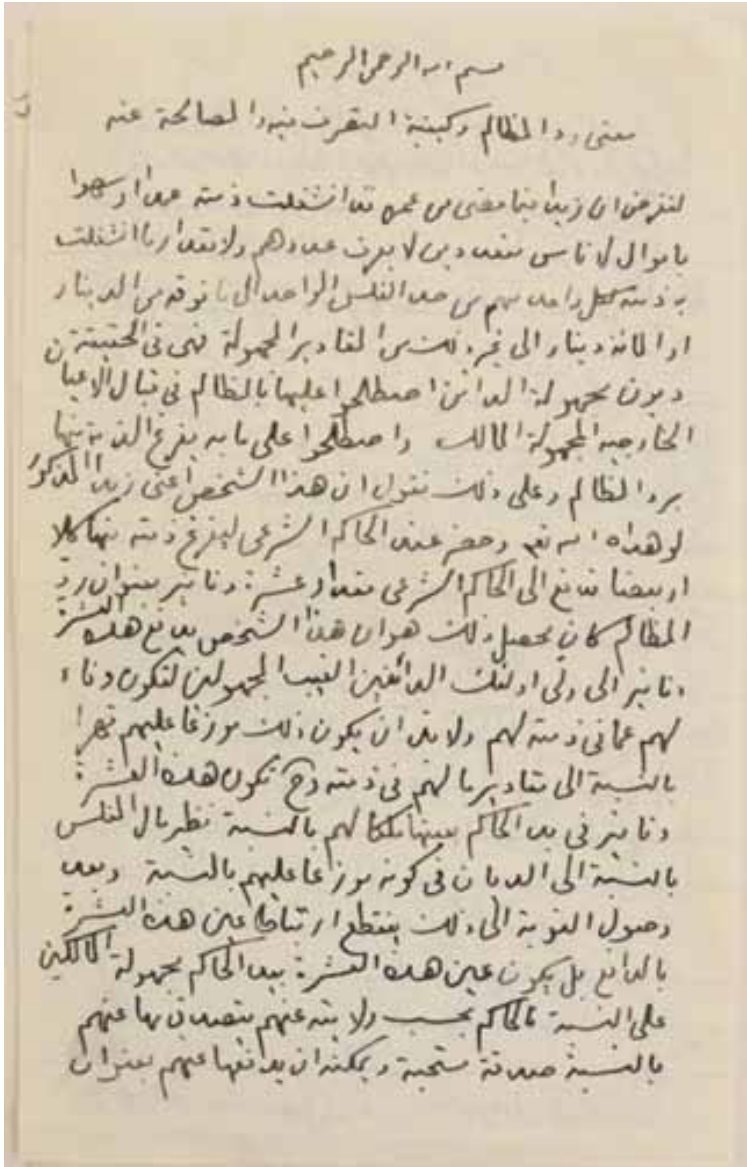 بسم الله الرحمن الرحيم
معنى رد المظالم وكيفية التصرف فيه والمصالحة عنه
لنفرض ان زيدا فيما مضى من عمره قد انشغلت ذمته عمدا او سهوا
باموال لاناس متعددين لا يعرف عددهم ولا مقدار ما انشغلت
به ذمته لكل واحد منهم من حد الفلس الواحد الى ما فوقه من الدينار
او المائة دينار الى غير ذلك من المقادير المجهولة فهي في الحقيقة
ديون مجهولة الدائن اصطلحوا عليها بالمظالم في قبال الاعيان
الخارجية المجهولة المالك واصطلحوا على ما به يفرغ الذمة منها
برد المظالم وعلى ذلك نقول ان هذا الشخص اعني زيدا المذكور
لو هداه الله تعالى وحضر عند الحاكم الشرعي ليفرغ ذمته منها كلا
او بعضا فدفع الى الحاكم الشرعي مقدار عشرة دنانير بعنوان رد
المظالم كان محصل ذلك هو ان هذا الشخص يدفع هذه العشرة
دنانير الى ولي اولئك الدائنين الغيب المجهولين لتكون وفاء
لهم عما في ذمته لهم ولابد ان يكون ذلك موزعا عليهم قهرا
بالنسبة الى مقادير ما لهم في ذمته وح تكون هذه العشرة
دنانير في يد الحاكم بعينها ملكا لهم بالنسبة نظير مال المفلس
بالنسبة الى الديان في كونه موزعا عليهم بالنسبة وبعد
وصول النوبة الى ذلك ينقطع ارتباط عين هذه العشرة
بالدافع بل يكون عين هذه العشرة بيد الحاكم مجهولة المالكين
على النسبة فالحاكم بحسب ولايته عنهم يتصدق بها عنهم
بالنسبة صدقة مستحبة ويمكنه ان يدفعها عنهم بعنوان